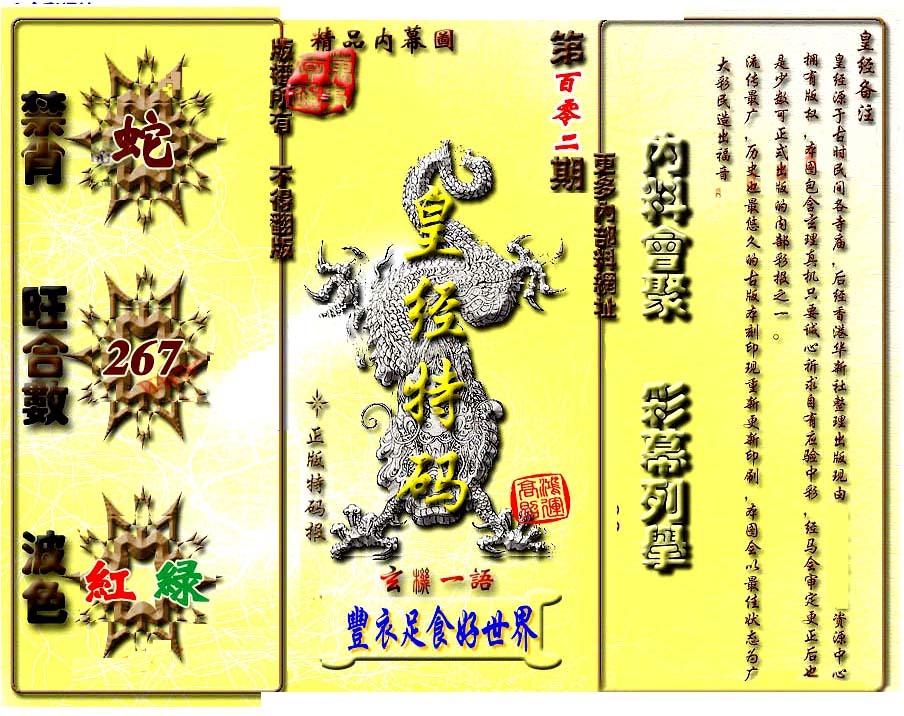 禁肖
蛇
旺合數
267
波色
紅 綠
版權所有 不得翻版
精品内幕圖
第百零二期
更多內部料網址
皇经特码
正版特码报
鴻運高照
玄機一語
豐衣足食好世界
内料會聚 彩幕列舉
皇经备注
皇经源于古时民间各寺庙，后经香港华新社整理出版现由 资源中心
拥有版权，本图包含玄理真机只要诚心祈求自有应验中彩，经马会审定更正后也
是少数可正式出版的内部彩报之一。
流传最广，历史也最悠久的古版本刻印现重新更新印刷，本图会以最佳状态为广
大彩民造出福音。